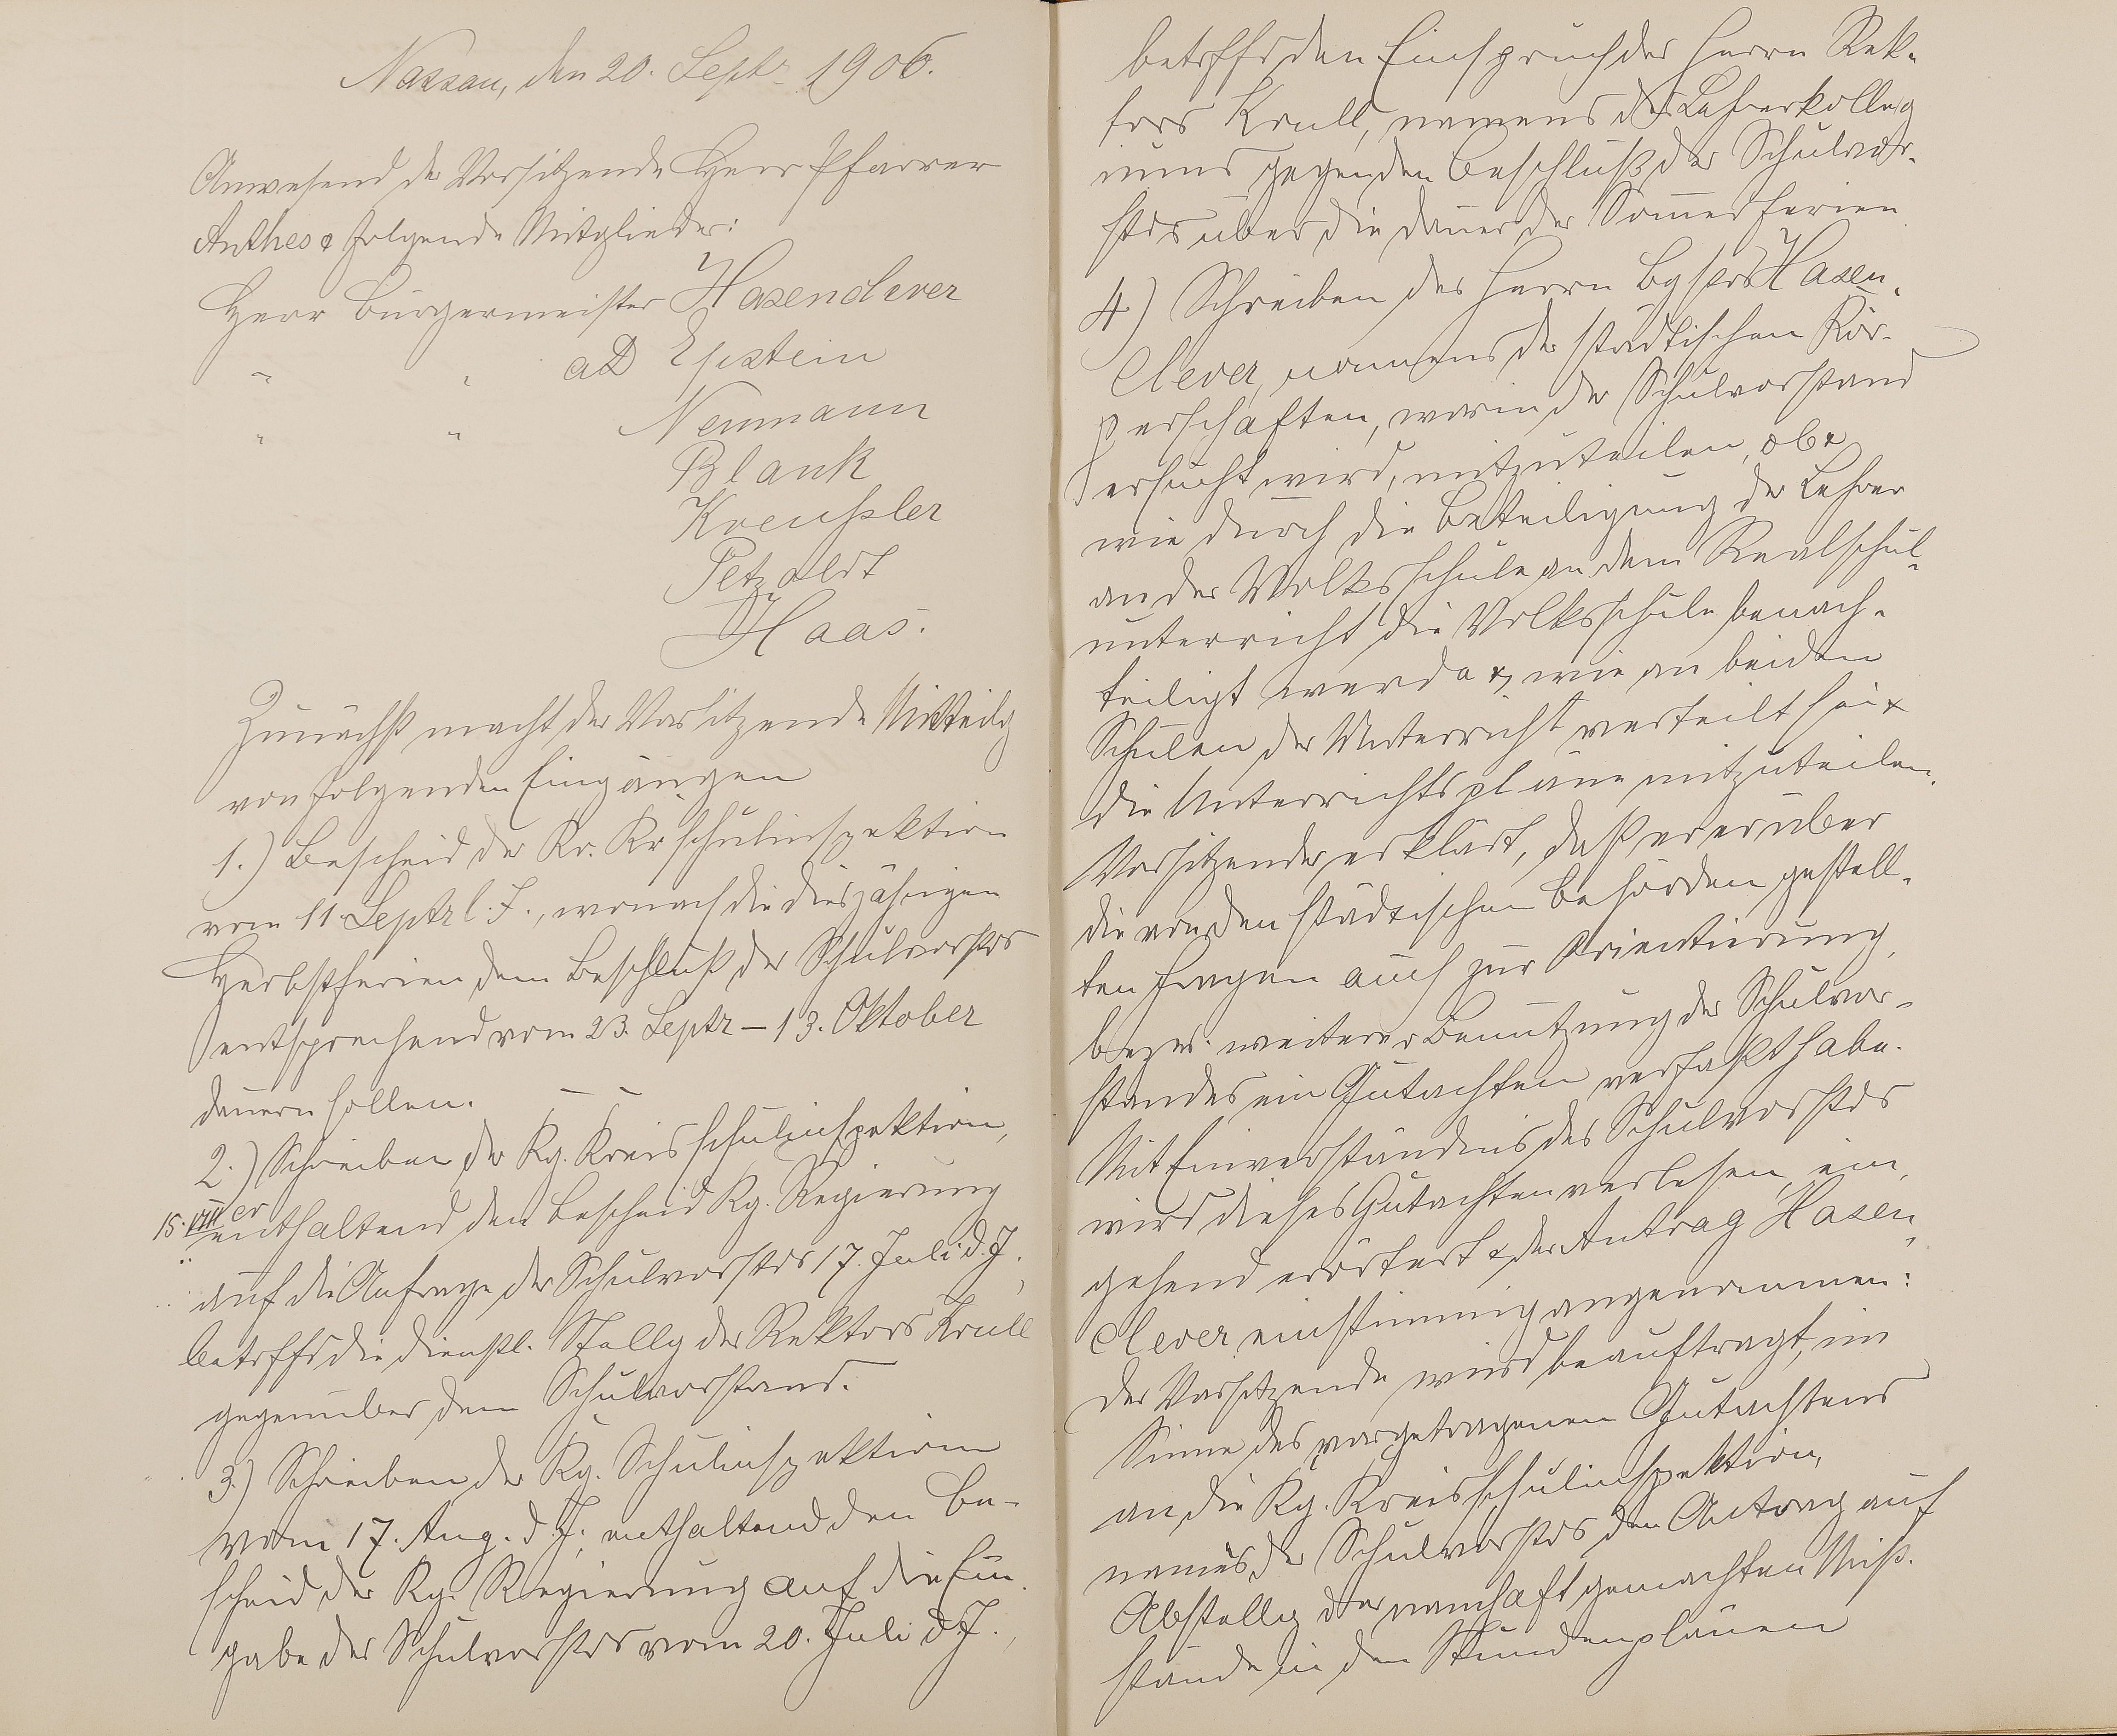 Nassau, den 20. Septr. 1906.
Anwesend der Vorsitzende Herr Pfarrer
Anthes & folgende Mitglieder:
Herr Bürgermeister Hasenclever
" " aD Epstein
" " Neumann
Blank
Kreußler
Petzoldt
Haas.
Zunächst macht der Vorsitzende Mitteilg
von folgenden Eingängen
1.) Bescheid der Kr. Krschulinspektion
vom 11. Septr l. J., wonach die diesjährigen
Herbstferien dem Beschluß des Schulvorstds
entsprechend vom 23. Septr – 13. Oktober
dauern sollen.
2.) Schreiben der Kg. Kreisschulinspektion,
15. VIII cr
enthaltend den Bescheid Kg. Regierung
auf die Anfrage des Schulvorstds 17. Juli d. J.,
betrffd die dienstl. Stellg des Rektors Krull
gegenüber dem Schulvorstand.
3.) Schreiben der Kg. Schulinspektion
vom 17. Aug. d. J., enthaltend den Be-
scheid der Kg. Regierung auf die Ein-
gabe des Schulvorstds vom 20. Juli d. J.,
betrffd den Einspruch des Herrn Rek-
tors Krull, namens des Lehrerkolleg
iums gegen den Beschluß des Schulvor-
stds über die Dauer der Sommerferien
4) Schreiben des Herrn Bgstrs Hasen-
clever, namens der städtischen Kör-
perschaften, worin der Schulvorstand
ersucht wird, mitzuteilen, ob &
wie durch die Beteiligung der Lehrer
an der Volksschule an dem Realschul-
unterricht die Volksschule benach-
teiligt werde &, wie an beiden
Schulen der Unterricht verteilt sei &
die Unterrichtspläne mitzuteilen.
Vorsitzender erklärt, daß er über
die von den städtischen Behörden gestell-
ten Fragen auch zur Orientierung,
bezw. weiterer Benutzung des Schulvor-
standes ein Gutachten verfaßt habe.
Mit Einverständnis des Schulvorstds
wird dieses Gutachten verlesen, ein-
gehend erörtert & der Antrag Hasen-
clever einstimmig angenommen:
Der Vorsitzende wird beauftragt, im
Sinne des vorgetragenen Gutachtens
an die Kg. Kreisschulinspektion,
namens des Schulvorstds den Antrag auf
Abstellg der namhaft gemachten Miß-
stände in den Stundenplänen